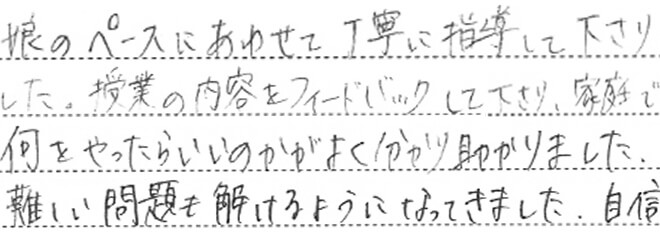 娘のペースにあわせて丁寧に指導して下さり
した。授業の内容をフィードバックして下さり、家庭で
何をやったらいいのかがよく分かり助かりました.
難しい問題も解けるようになってきました. 自信